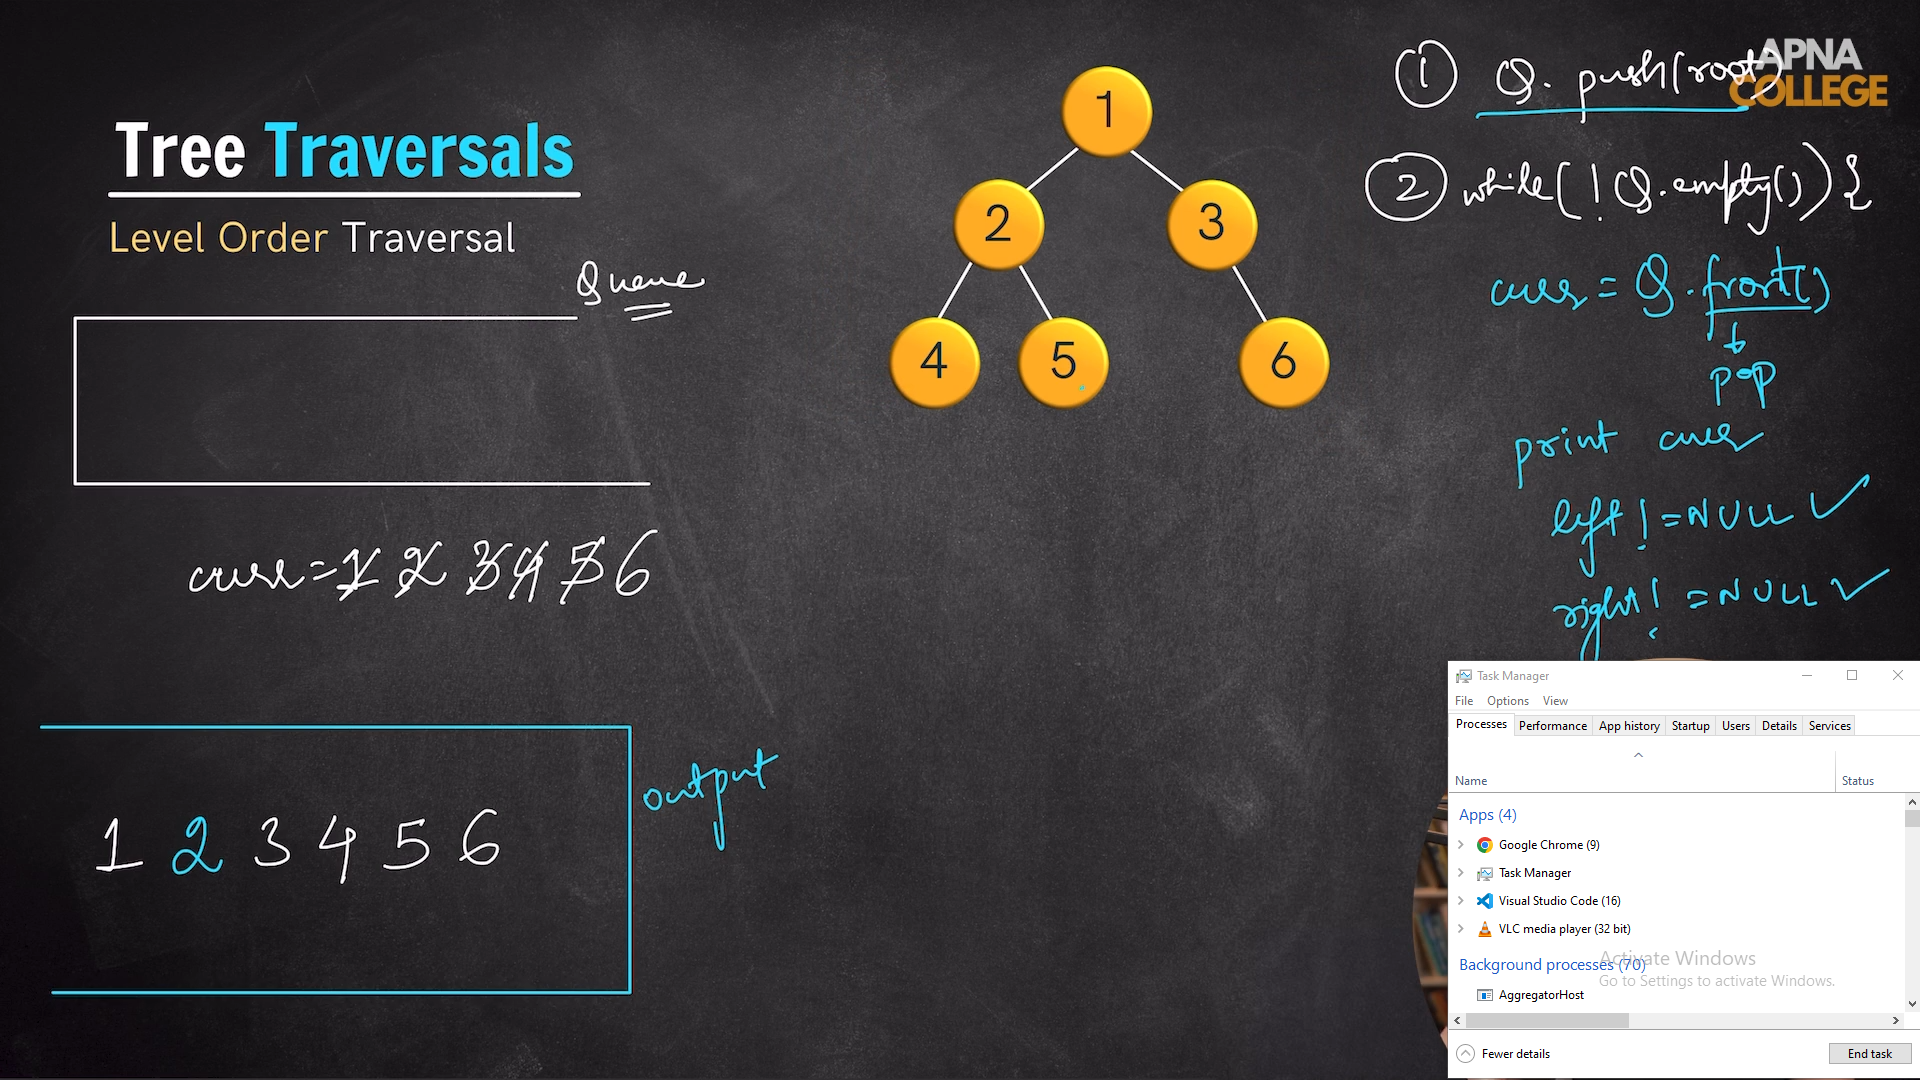 Tree Traversals
Level Order Traversal
Queue
curr = 1 2 3 4 5 6
1 2 3 4 5 6
output
1
2
3
4
5
6
APNA
COLLEGE
1 Q. push(root)
2 while(!Q.empty()){
curr = Q.front()
pop
print curr
left != NULL ✓
right != NULL ✓
Task Manager
File Options View
Processes Performance App history Startup Users Details Services
Name Status
Apps (4)
Google Chrome (9)
Task Manager
Visual Studio Code (16)
VLC media player (32 bit)
Background processes (70)
AggregatorHost
Activate Windows
Go to Settings to activate Windows.
Fewer details End task